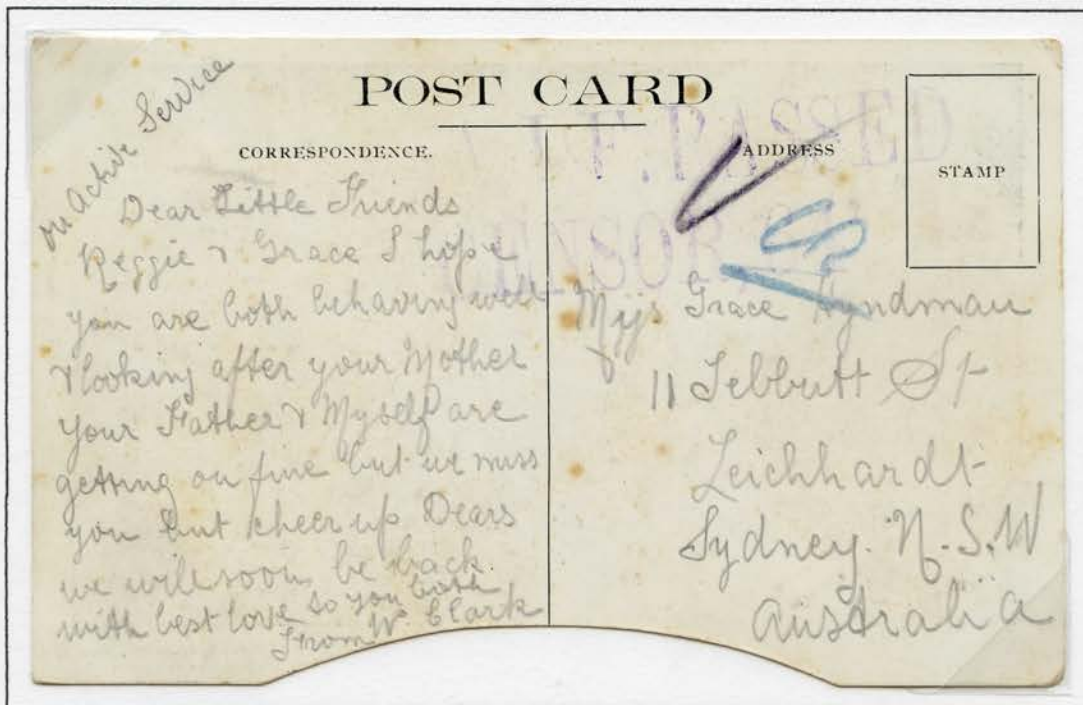 On Active Service
POST CARD
CORRESPONDENCE.
Dear Little Friends
Reggie & Grace I hope
you are both behaving well
& looking after your Mother
Your Father & Myself are
getting on fine but we miss
you but cheer up Dears
we will soon be back.
with best love to you both
From W. Clark
ADDRESS
STAMP
I.F. PASSED
CENSOR
Miss Grace Hyndman
11 Tebbutt St
Leichhardt
Sydney. N.S.W
Australia